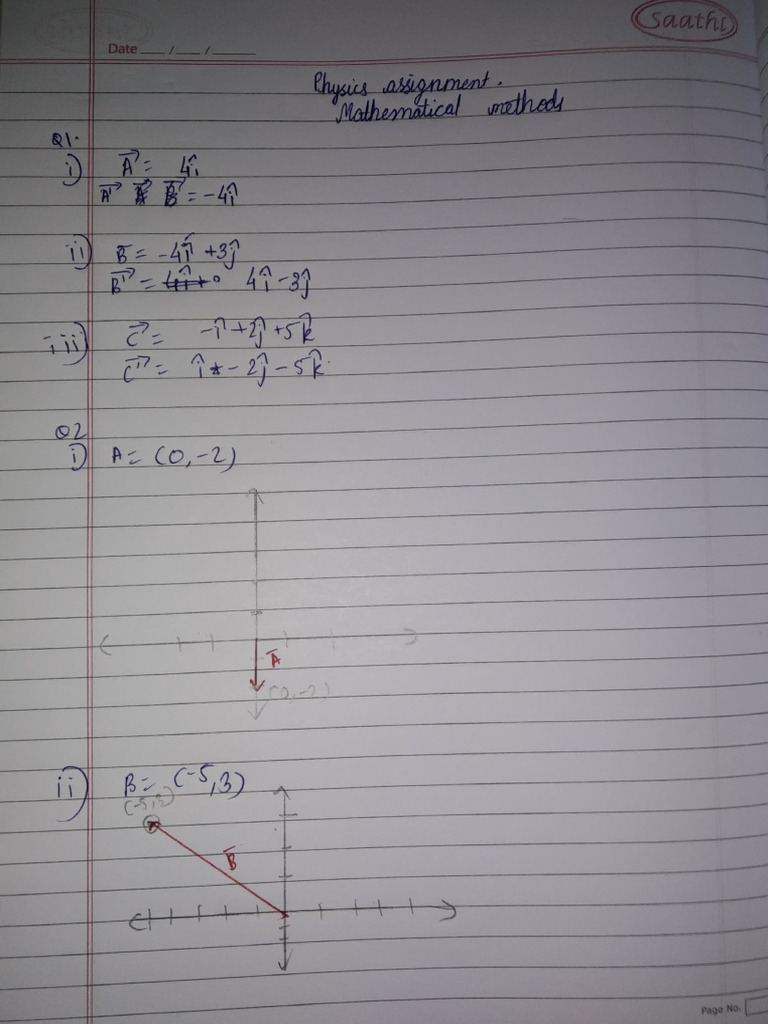 Saathi
Date ___/___/_____
Physics assignment.
Mathematical methods
Q1.
i) A⃗ = 4î
A⃗' B⃗ = -4î
ii) B̄ = -4î + 3ĵ
B⃗' = 4î - 3ĵ
iii) C⃗ = -î + 2ĵ + 5k̂
C⃗' = î - 2ĵ - 5k̂
Q2
i) A = (0, -2)
Ā
(0, -2)
ii) B = (-5, 3)
(-5, 3)
B̄
Page No.